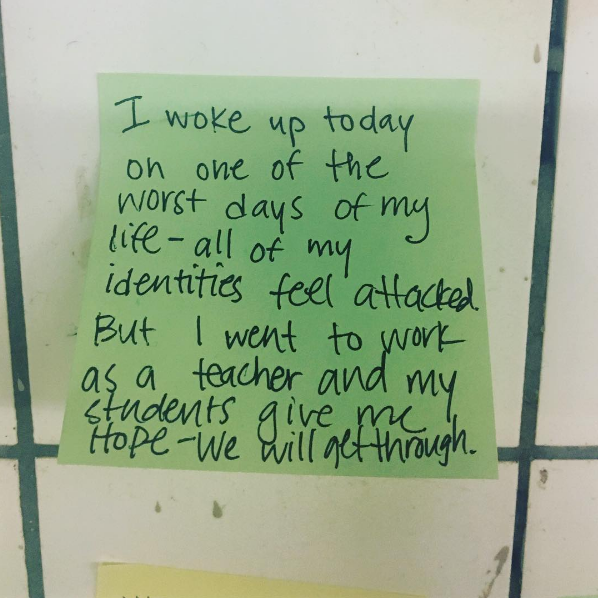 I woke up today
on one of the
worst days of my
life - all of my
identities feel attacked.
But I went to work
as a teacher and my
students give me
Hope - We will get through.